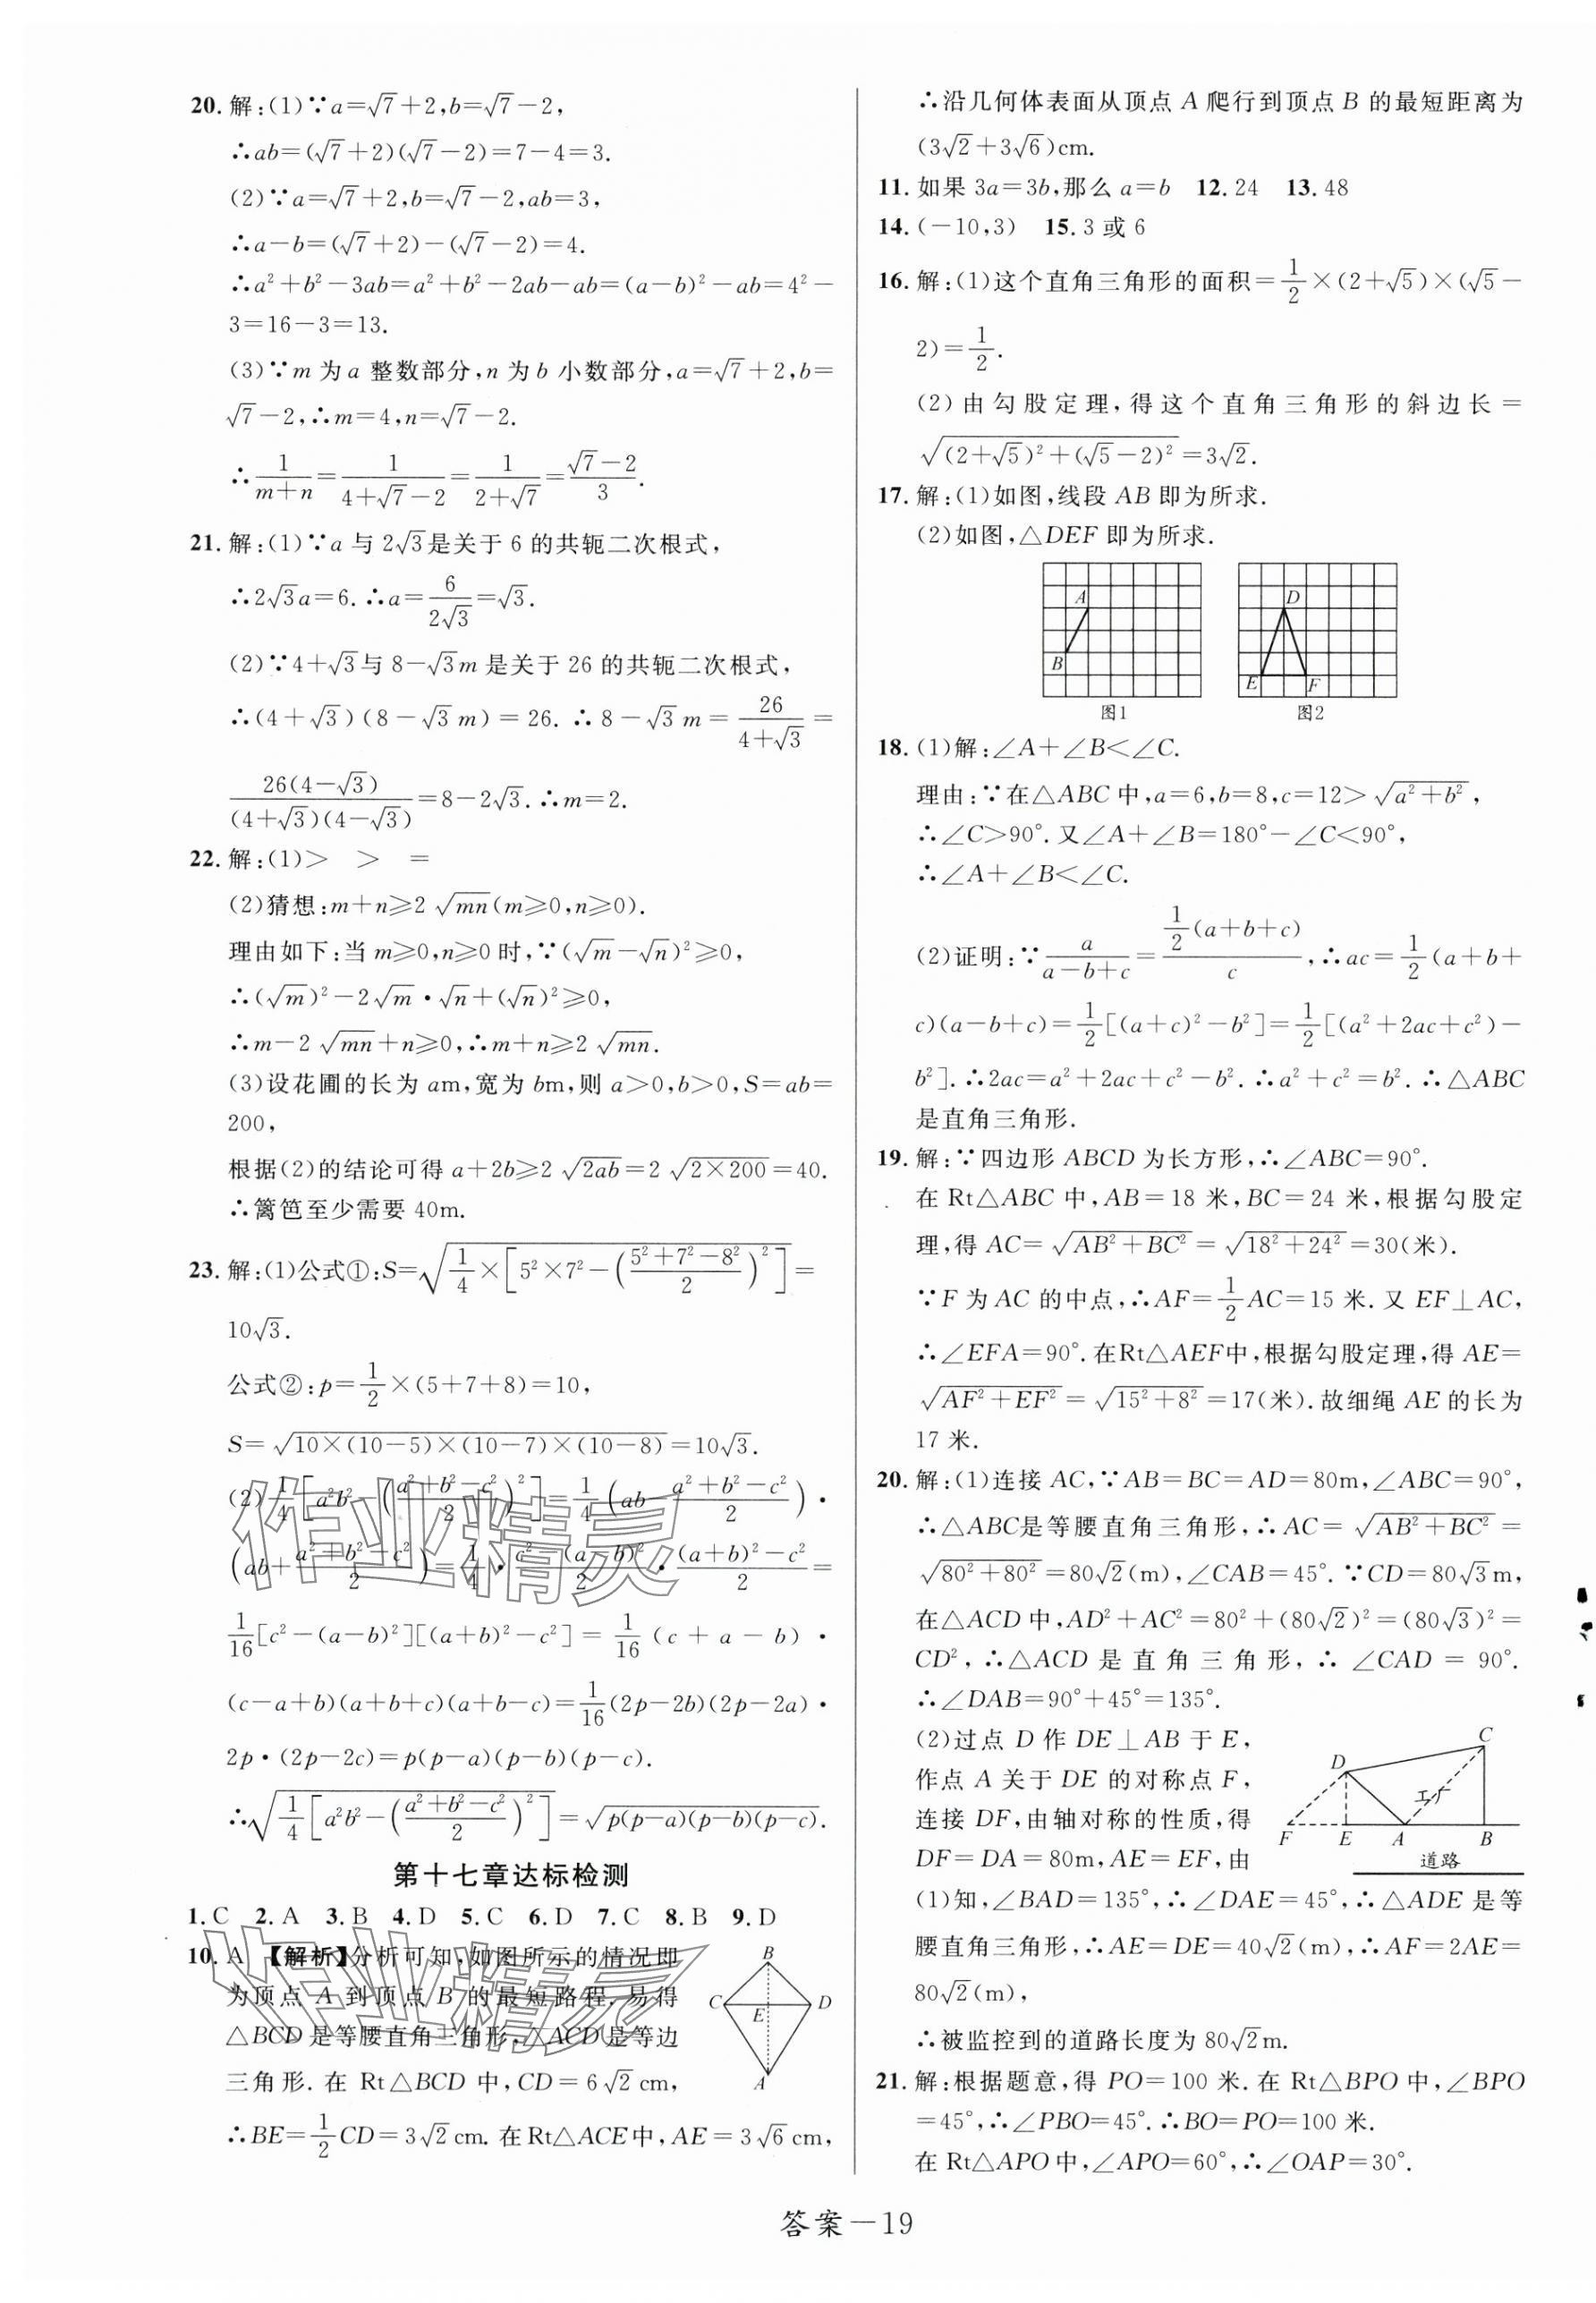 20. 解:(1)∵a=√7+2,b=√7-2,
∴ab=(√7+2)(√7-2)=7-4=3.
(2)∵a=√7+2,b=√7-2,ab=3,
∴a-b=(√7+2)-(√7-2)=4.
∴a²+b²-3ab=a²+b²-2ab-ab=(a-b)²-ab=4²-
3=16-3=13.
(3)∵m 为 a 整数部分,n 为 b 小数部分,a=√7+2,b=
√7-2,∴m=4,n=√7-2.
∴1/(m+n)=1/(4+√7-2)=1/(2+√7)=(√7-2)/3.
21. 解:(1)∵a 与 2√3是关于 6 的共轭二次根式,
∴2√3a=6. ∴a=6/(2√3)=√3.
(2)∵4+√3与 8-√3m 是关于 26 的共轭二次根式,
∴(4+√3)(8-√3m)=26. ∴8-√3m=26/(4+√3)=
26(4-√3)/((4+√3)(4-√3))=8-2√3. ∴m=2.
22. 解:(1)> > =
(2)猜想:m+n≥2√(mn)(m≥0,n≥0).
理由如下:当 m≥0,n≥0 时,∵(√m-√n)²≥0,
∴(√m)²-2√m·√n+(√n)²≥0,
∴m-2√(mn)+n≥0,∴m+n≥2√(mn).
(3)设花圃的长为 am,宽为 bm,则 a>0,b>0,S=ab=
200,
根据(2)的结论可得 a+2b≥2√(2ab)=2√(2×200)=40.
∴篱笆至少需要 40m.
23. 解:(1)公式①:S=√(1/4×[5²×7²-((5²+7²-8²)/2)²])=
10√3.
公式②:p=1/2×(5+7+8)=10,
S=√(10×(10-5)×(10-7)×(10-8))=10√3.
(2)1/4[a²b²-((a²+b²-c²)/2)²]=1/4(ab-(a²+b²-c²)/2)·
(ab+(a²+b²-c²)/2)=1/4·(c²-(a-b)²)/2·((a+b)²-c²)/2=
1/16[c²-(a-b)²][(a+b)²-c²]=1/16(c+a-b)·
(c-a+b)(a+b+c)(a+b-c)=1/16(2p-2b)(2p-2a)·
2p·(2p-2c)=p(p-a)(p-b)(p-c).
∴√(1/4[a²b²-((a²+b²-c²)/2)²])=√(p(p-a)(p-b)(p-c)).
第十七章达标检测
1. C 2. A 3. B 4. D 5. C 6. D 7. C 8. B 9. D
10. A 【解析】分析可知,如图所示的情况即
为顶点 A 到顶点 B 的最短路程. 易得
△BCD 是等腰直角三角形,△ACD 是等边
三角形. 在 Rt△BCD 中,CD=6√2cm,
B
C
D
E
A
∴BE=1/2CD=3√2cm. 在 Rt△ACE 中,AE=3√6cm,
∴沿几何体表面从顶点 A 爬行到顶点 B 的最短距离为
(3√2+3√6)cm.
11. 如果 3a=3b,那么 a=b 12. 24 13. 48
14. (-10,3) 15. 3 或 6
16. 解:(1)这个直角三角形的面积=1/2×(2+√5)×(√5-
2)=1/2.
(2)由勾股定理,得这个直角三角形的斜边长=
√((2+√5)²+(√5-2)²)=3√2.
17. 解:(1)如图,线段 AB 即为所求.
(2)如图,△DEF 即为所求.
A
B
图1
D
E
F
图2
18. (1)解:∠A+∠B<∠C.
理由:∵在△ABC 中,a=6,b=8,c=12>√(a²+b²),
∴∠C>90°. 又∠A+∠B=180°-∠C<90°,
∴∠A+∠B<∠C.
(2)证明:∵a/(a-b+c)=(1/2(a+b+c))/c,∴ac=1/2(a+b+
c)(a-b+c)=1/2[(a+c)²-b²]=1/2[(a²+2ac+c²)-
b²]. ∴2ac=a²+2ac+c²-b². ∴a²+c²=b². ∴△ABC
是直角三角形.
19. 解:∵四边形 ABCD 为长方形,∴∠ABC=90°.
在 Rt△ABC 中,AB=18 米,BC=24 米,根据勾股定
理,得 AC=√(AB²+BC²)=√(18²+24²)=30(米).
∵F 为 AC 的中点,∴AF=1/2AC=15 米. 又 EF⊥AC,
∴∠EFA=90°. 在Rt△AEF中,根据勾股定理,得 AE=
√(AF²+EF²)=√(15²+8²)=17(米). 故细绳 AE 的长为
17 米.
20. 解:(1)连接 AC,∵AB=BC=AD=80m,∠ABC=90°,
∴△ABC是等腰直角三角形,∴AC=√(AB²+BC²)=
√(80²+80²)=80√2(m),∠CAB=45°. ∵CD=80√3m,
在△ACD 中,AD²+AC²=80²+(80√2)²=(80√3)²=
CD²,∴△ACD 是直角三角形,∴∠CAD=90°.
∴∠DAB=90°+45°=135°.
(2)过点 D 作 DE⊥AB 于 E,
作点 A 关于 DE 的对称点 F,
连接 DF,由轴对称的性质,得
DF=DA=80m,AE=EF,由
C
D
工厂
F
E
A
B
道路
(1)知,∠BAD=135°,∴∠DAE=45°,∴△ADE 是等
腰直角三角形,∴AE=DE=40√2(m),∴AF=2AE=
80√2(m),
∴被监控到的道路长度为 80√2m.
21. 解:根据题意,得 PO=100 米. 在 Rt△BPO 中,∠BPO
=45°,∴∠PBO=45°. ∴BO=PO=100 米.
在 Rt△APO 中,∠APO=60°,∴∠OAP=30°.
答案-19
作业精灵
作业精灵